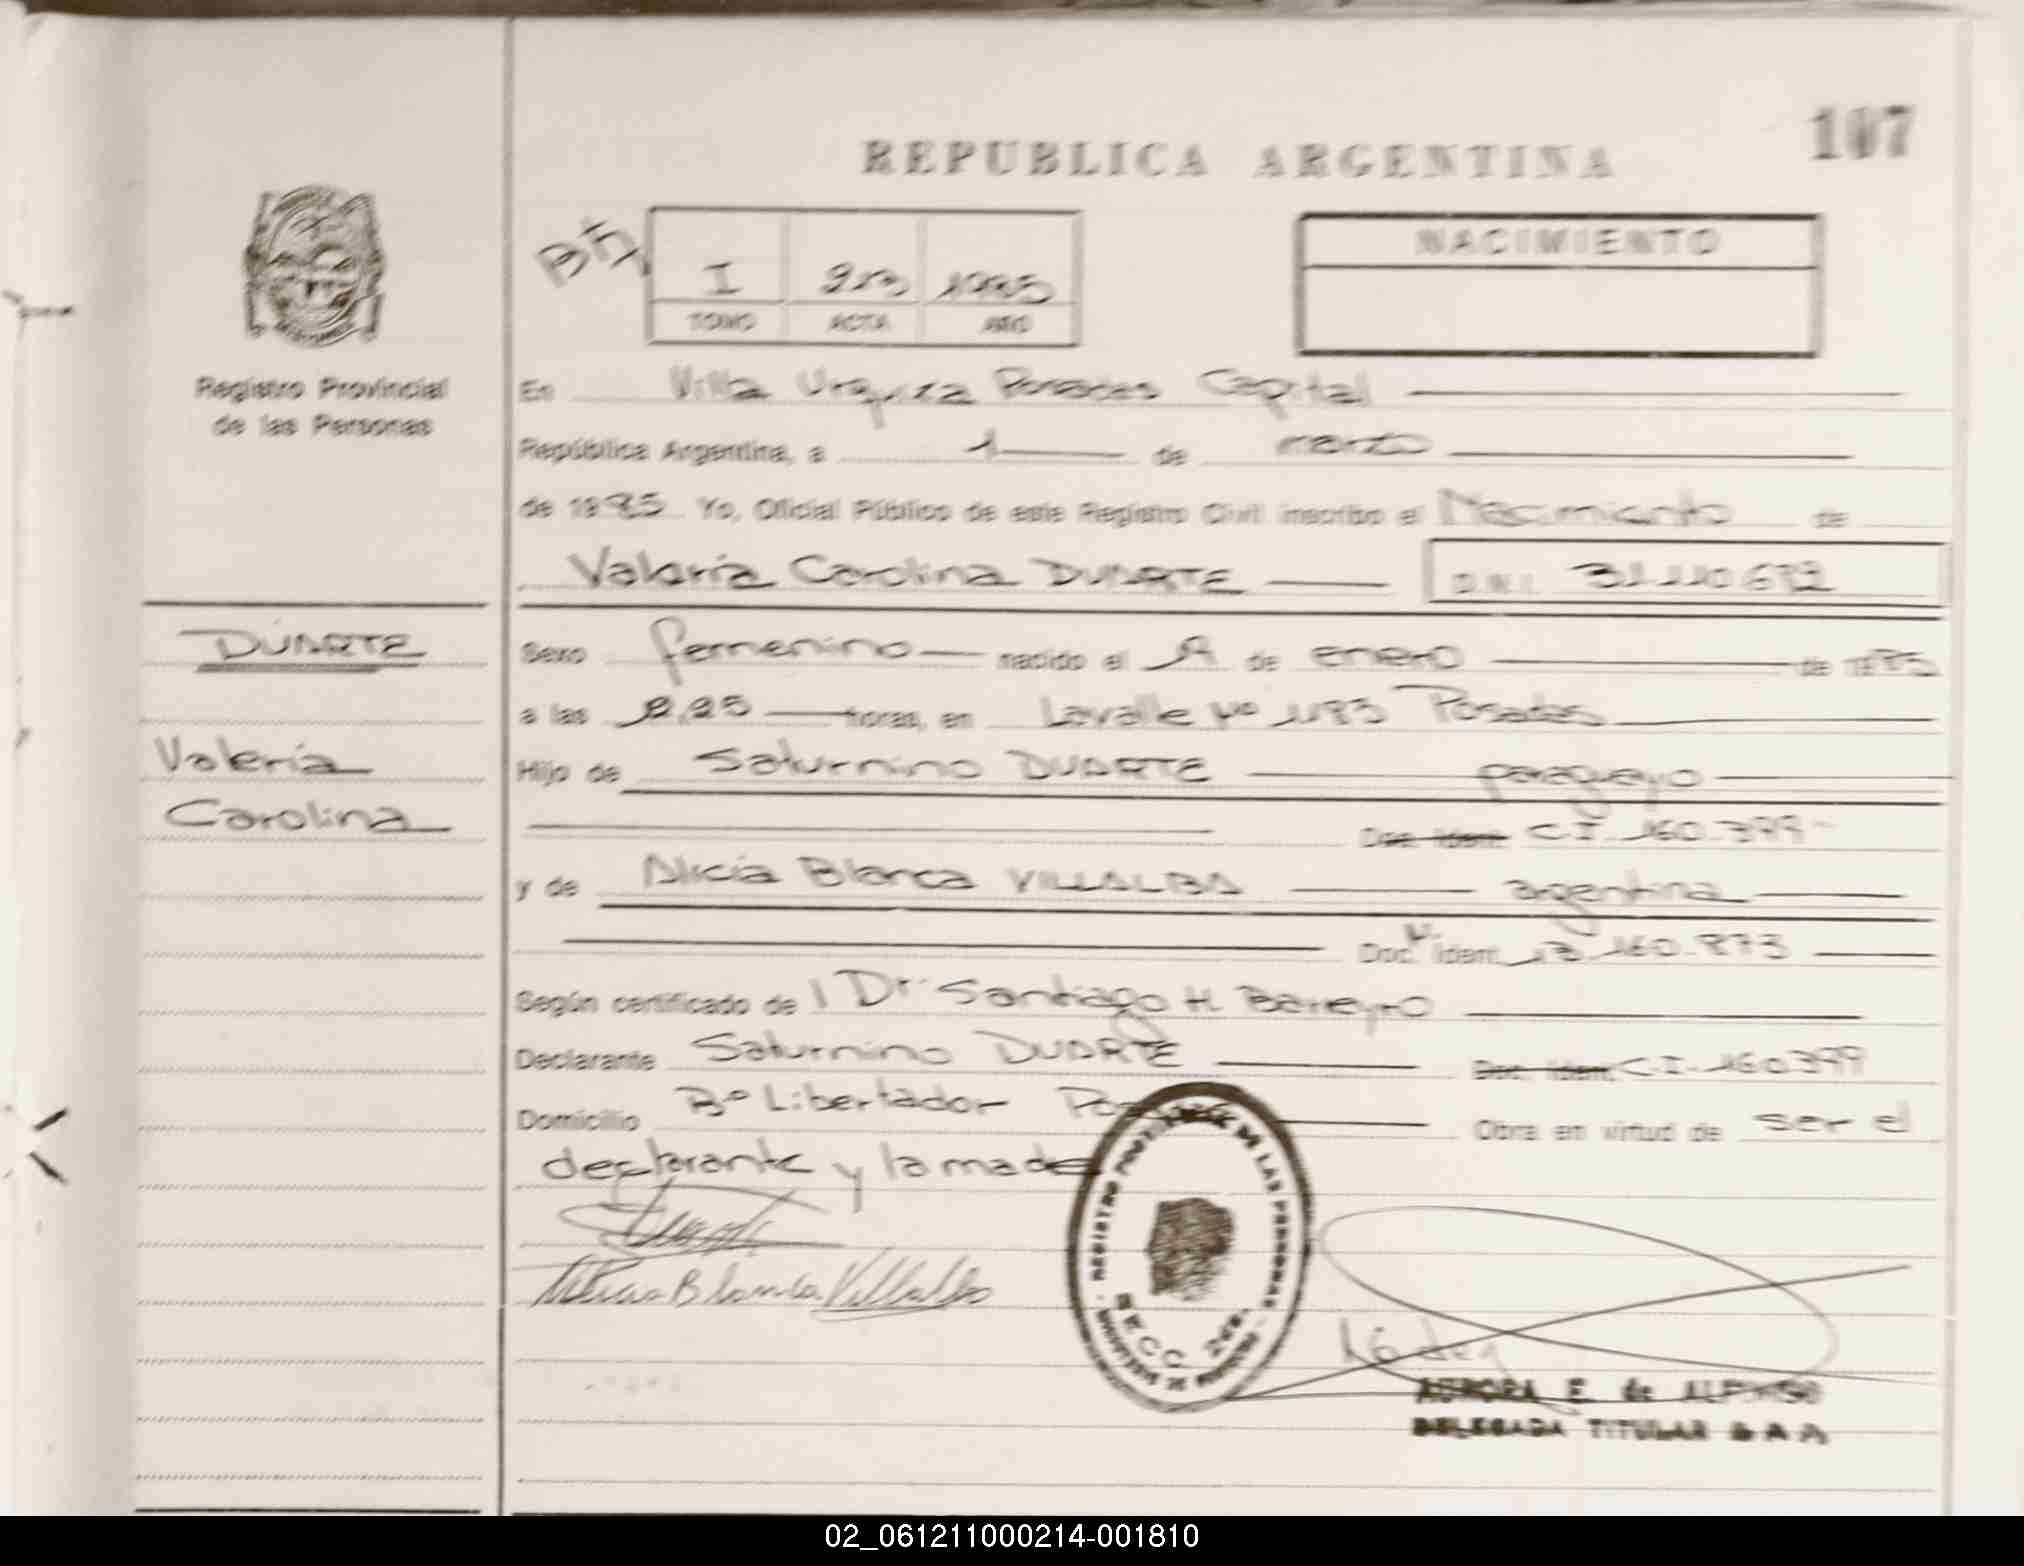 107
REPUBLICA ARGENTINA
NACIMIENTO
I 213 1985
TOMO ACTA AÑO
Registro Provincial
de las Personas
En Villa Urquiza Posadas Capital
República Argentina, a 1 de marzo
de 1985 Yo, Oficial Público de este Registro Civil inscribo el Nacimiento de
Valeria Carolina DUARTE D.N.I. 31.110.672
DUARTE
Valeria
Carolina
Sexo femenino nacido el de enero de 1985
a las horas, en Lavalle Nº 1183 Posadas
Hijo de Saturnino DUARTE paraguayo
Doc. Ident. C.I. 160.399
y de Alicia Blanca VILLALBA argentina
Doc. N. Ident. 13.160.873
Según certificado de l Dr. Santiago H. Barreyro
Declarante Saturnino DUARTE Doc. Ident. C.I. 160399
Domicilio Bº Libertador Obra en virtud de ser el
declarante y la madre
Alicia Blanca Villalba
REGISTRO PROVINCIAL DE LAS PERSONAS
SECC. 2da.
AURORA E. de ALFONSO
DELEGADA TITULAR
02_061211000214-001810